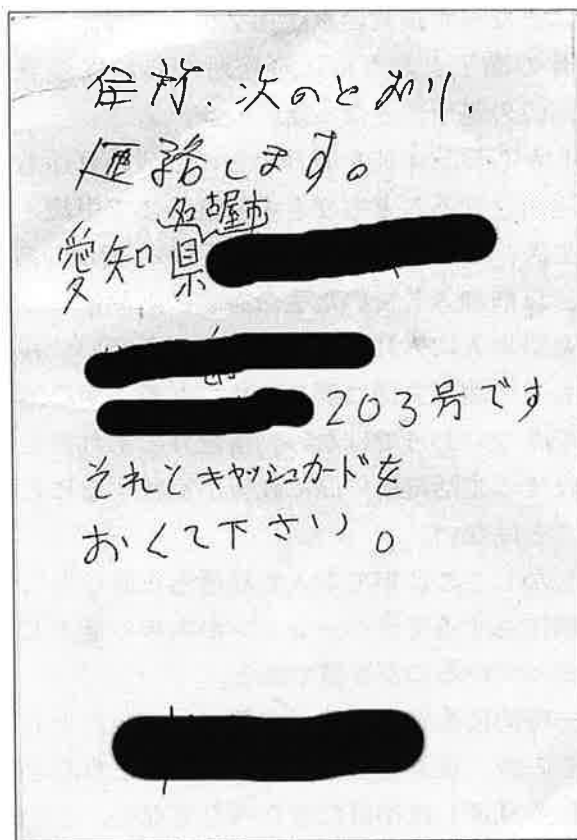 住所、次のとおり、
連絡します。
名古屋市
愛知県
203号です
それとキャッシュカードを
おくて下さい。